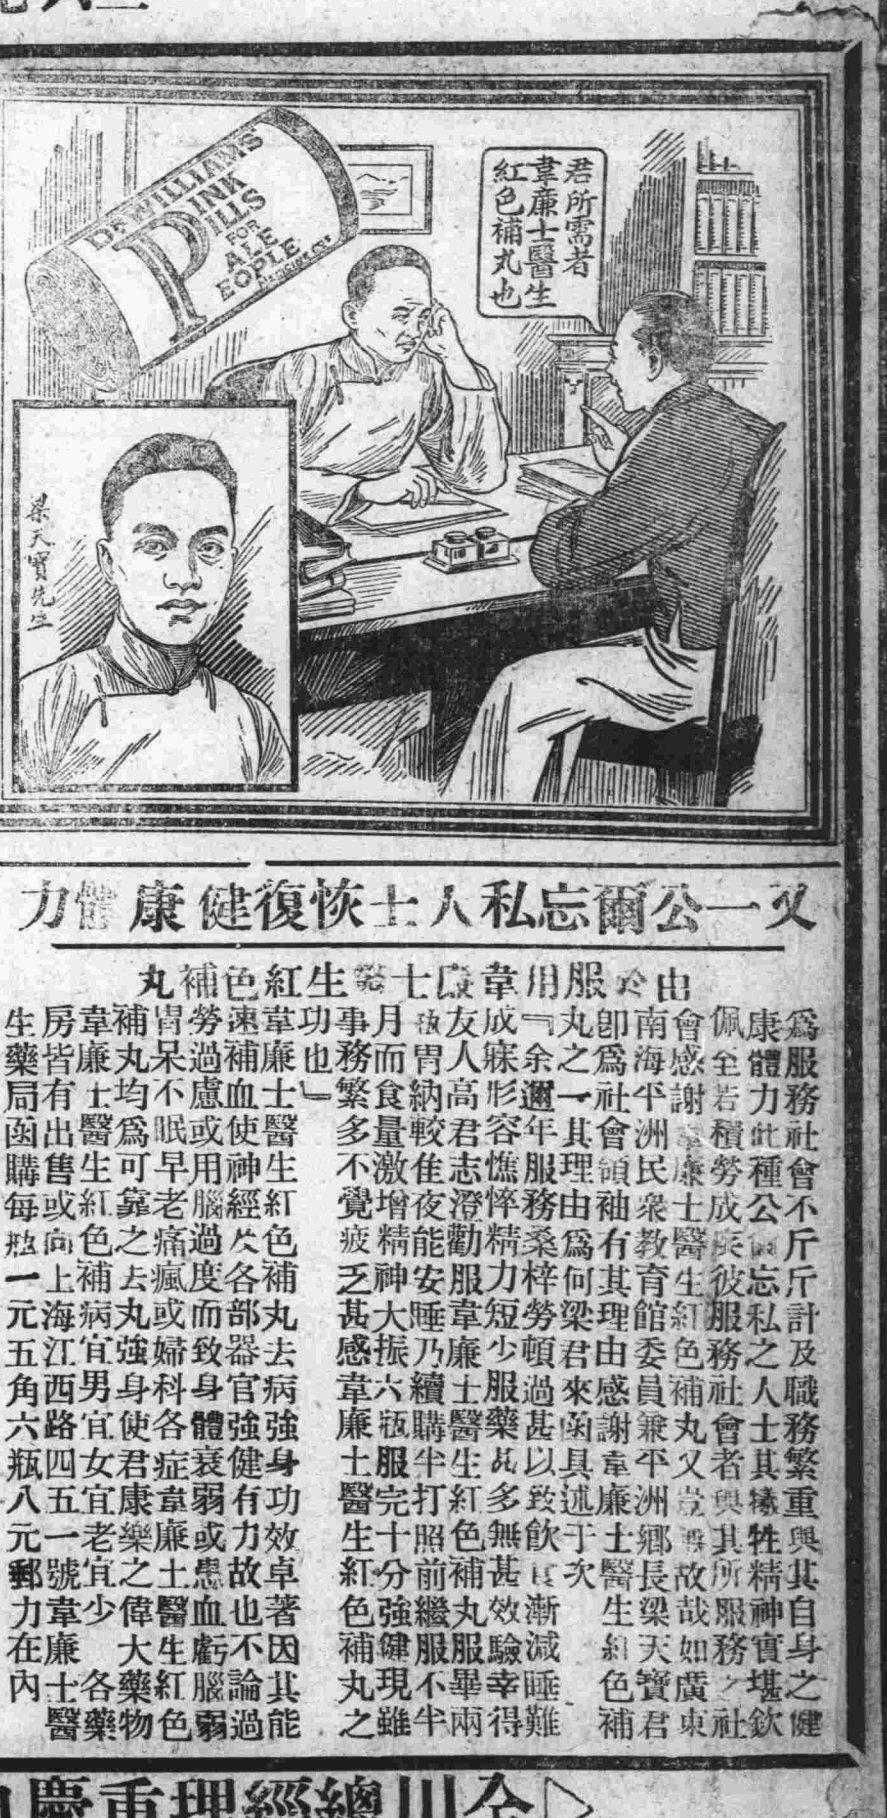 DR WILLIAMS'
PINK
PILLS
FOR
PALE
PEOPLE
君所需者
韋廉士醫生
紅色補丸也
梁天寶先生
又一公爾忘私人士恢復健康體力
由於服用韋廉士醫生紅色補丸
爲服務社會不斤斤計及職務繁重與其自身之健
康體力此種公爾忘私之人士其犧牲精神實堪欽
佩至若積勞成疾彼服務社會者與其所服務之社
會感謝韋廉士醫生紅色補丸又豈無故哉如廣東
南海平洲民衆教育館委員兼平洲鄉長梁天寶君
卽爲社會領袖有其理由感謝韋廉士醫生紅色補
丸之一其理由爲何梁君來函具述于次
『余邇年服務桑梓勞頓過甚以致飲食漸減睡難
成寐形容憔悴精力短少服藥甚多無甚效驗幸得
友人高君志澄勸服韋廉士醫生紅色補丸服畢兩
瓶胃納較佳夜能安睡乃續購半打照前繼服不半
月而食量激增精神大振六瓶服完十分強健現雖
事務繁多不覺疲乏甚感韋廉士醫生紅色補丸之
功也』
韋廉士醫生紅色補丸去病強身功效卓著因其能
速補血使神經及各部器官強健有力故也不論過
勞過慮或用腦過度而致身體衰弱或患血虧腦弱
胃呆不眠早老痛瘋或婦科各症韋廉士醫生紅色
補丸均爲可靠之去丸強身使君康樂之偉大藥物
韋廉士醫生紅色補病宜男宜女宜老宜少 各藥
房皆有出售或向上海江西路四五一號韋廉士醫
生藥局函購每瓶一元五角六瓶八元郵力在內
全川總經理重慶